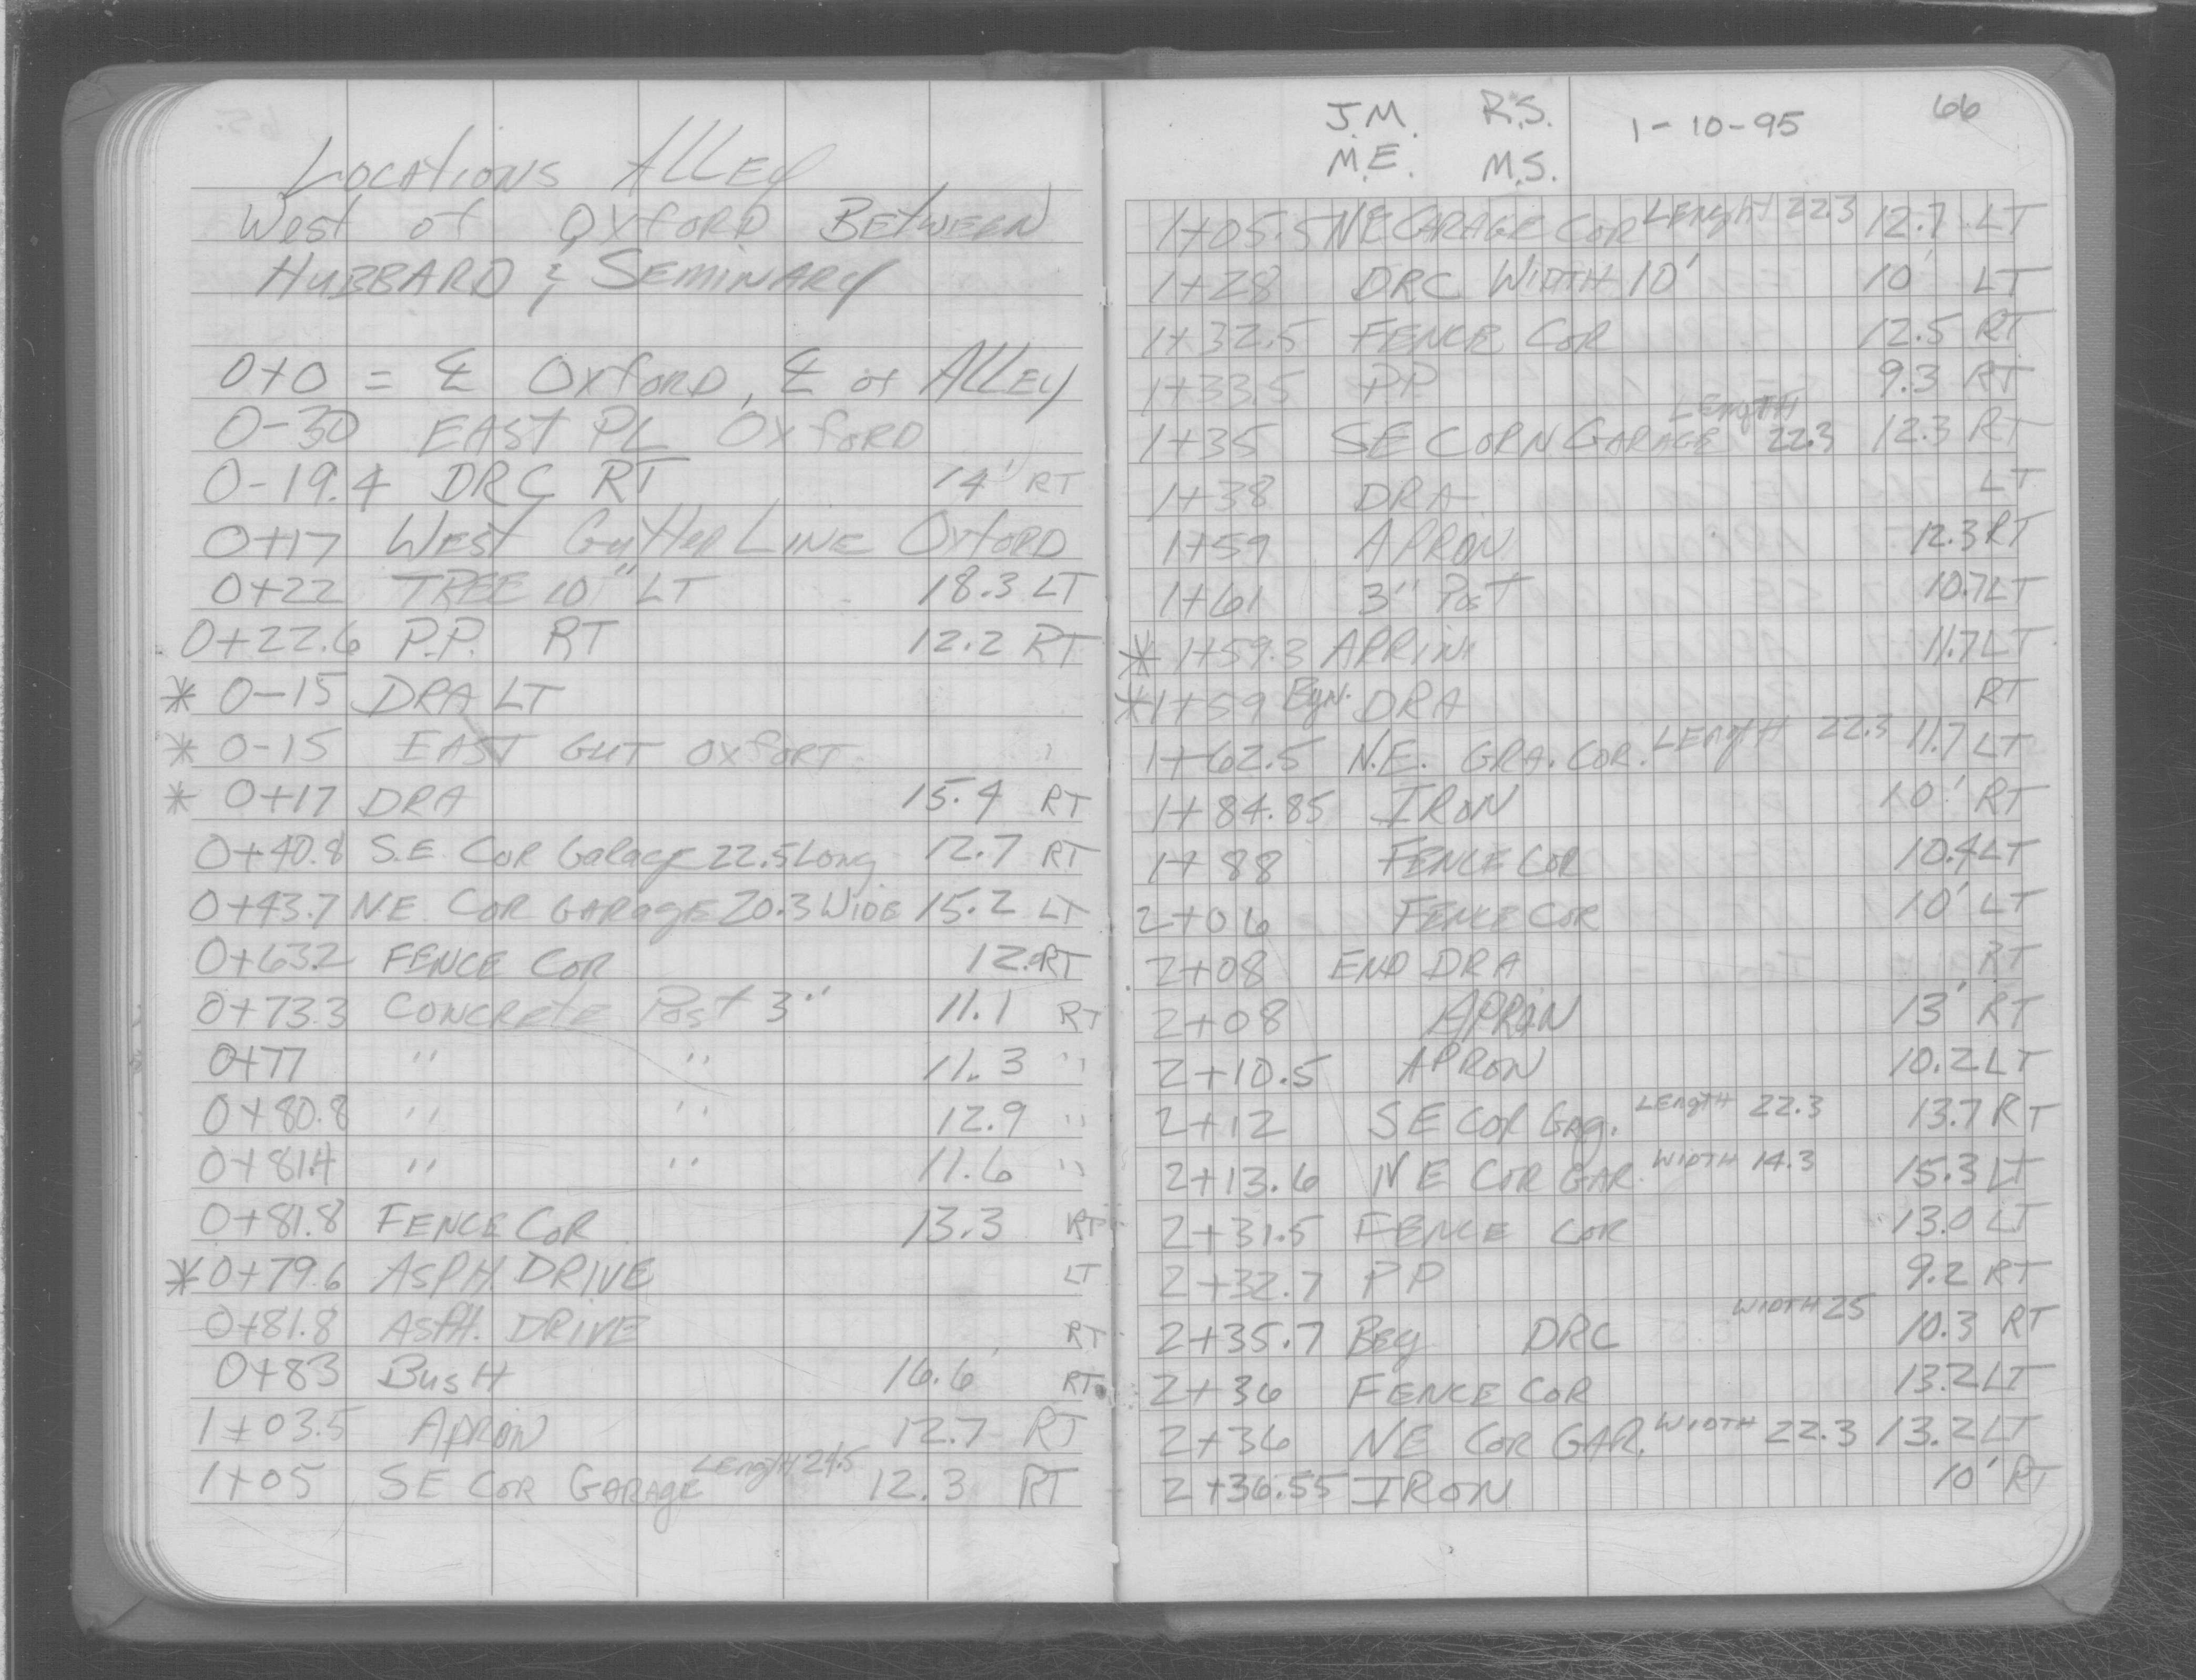 Locations Alley
West of Oxford Between
Hubbard & Seminary
0+0 = ℄ Oxford, ℄ of Alley
0-30 EAST PL Oxford
0-19.4 DRC RT 14' RT
0+17 West Gutter Line Oxford
0+22 TREE 10" LT 18.3 LT
0+22.6 P.P. RT 12.2 RT
* 0-15 DRA LT
* 0-15 EAST GUT OXFORT
* 0+17 DRA 15.4 RT
0+40.8 S.E. Cor Garage 22.5 Long 12.7 RT
0+43.7 N.E. Cor Garage 20.3 Wide 15.2 LT
0+63.2 FENCE COR 12. RT
0+73.3 Concrete Post 3" 11.1 RT
0+77 " " 11.3 "
0+80.8 " " 12.9 "
0+81.4 " " 11.6 "
0+81.8 FENCE COR 13.3 RT
* 0+79.6 ASPH. DRIVE LT
0+81.8 ASPH. DRIVE RT
0+83 Bush 16.6 RT
1+03.5 Apron 12.7 RT
1+05 SE COR GARAGE Length 24.5 12.3 RT
J.M. R.S. 1-10-95 66
M.E. M.S.
1+05.5 NE GARAGE COR LENgHT 22.3 12.7 LT
1+28 DRC WIDTH 10' 10' LT
1+32.5 FENCE COR 12.5 RT
1+33.5 PP 9.3 RT
1+35 SE CORN GARAGE LENgTH 22.3 12.3 RT
1+38 DRA LT
1+59 APRON 12.3 RT
1+61 3" Post 10.7 LT
* 1+59.3 APRIN 11.7 LT
* 1+59 Bgn. DRA RT
1+62.5 N.E. GRA. COR. LENgTH 22.3 11.7 LT
1+84.85 IRON 10' RT
1+88 FENCE COR 10.4 LT
2+06 FENCE COR 10' LT
2+08 END DRA RT
2+08 APRON 13' RT
2+10.5 APRON 10.2 LT
2+12 SE COR Gag. LENgTH 22.3 13.7 RT
2+13.6 NE COR GAR. WIDTH 14.3 15.3 LT
2+31.5 FENCE COR 13.0 LT
2+32.7 PP 9.2 RT
2+35.7 Beg DRC WIDTH 25 10.3 RT
2+36 FENCE COR 13.2 LT
2+36 NE COR GAR. WIDTH 22.3 13.2 LT
2+36.55 IRON 10' RT